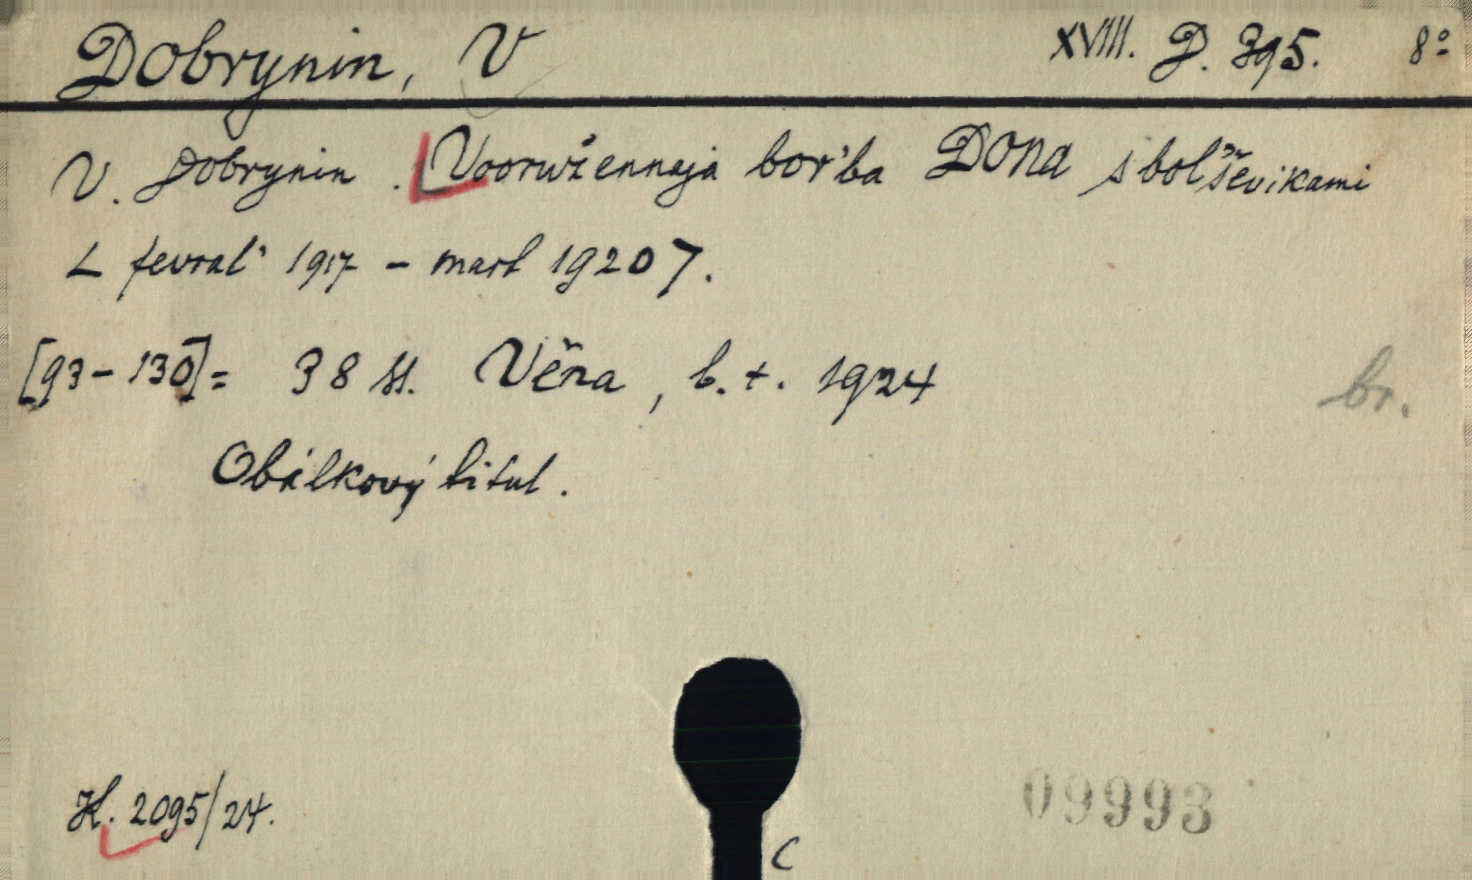 Dobrynin, V XVIII. D. 395. 8°
V. Dobrynin. Vooružennaja bor'ba Dona s bol'ševikami
[fevral' 1917 - mart 1920].
[93-130]= 38 st. Věna, b.t. 1924
br.
Obálkový titul.
H. 2095/24.
09993
C